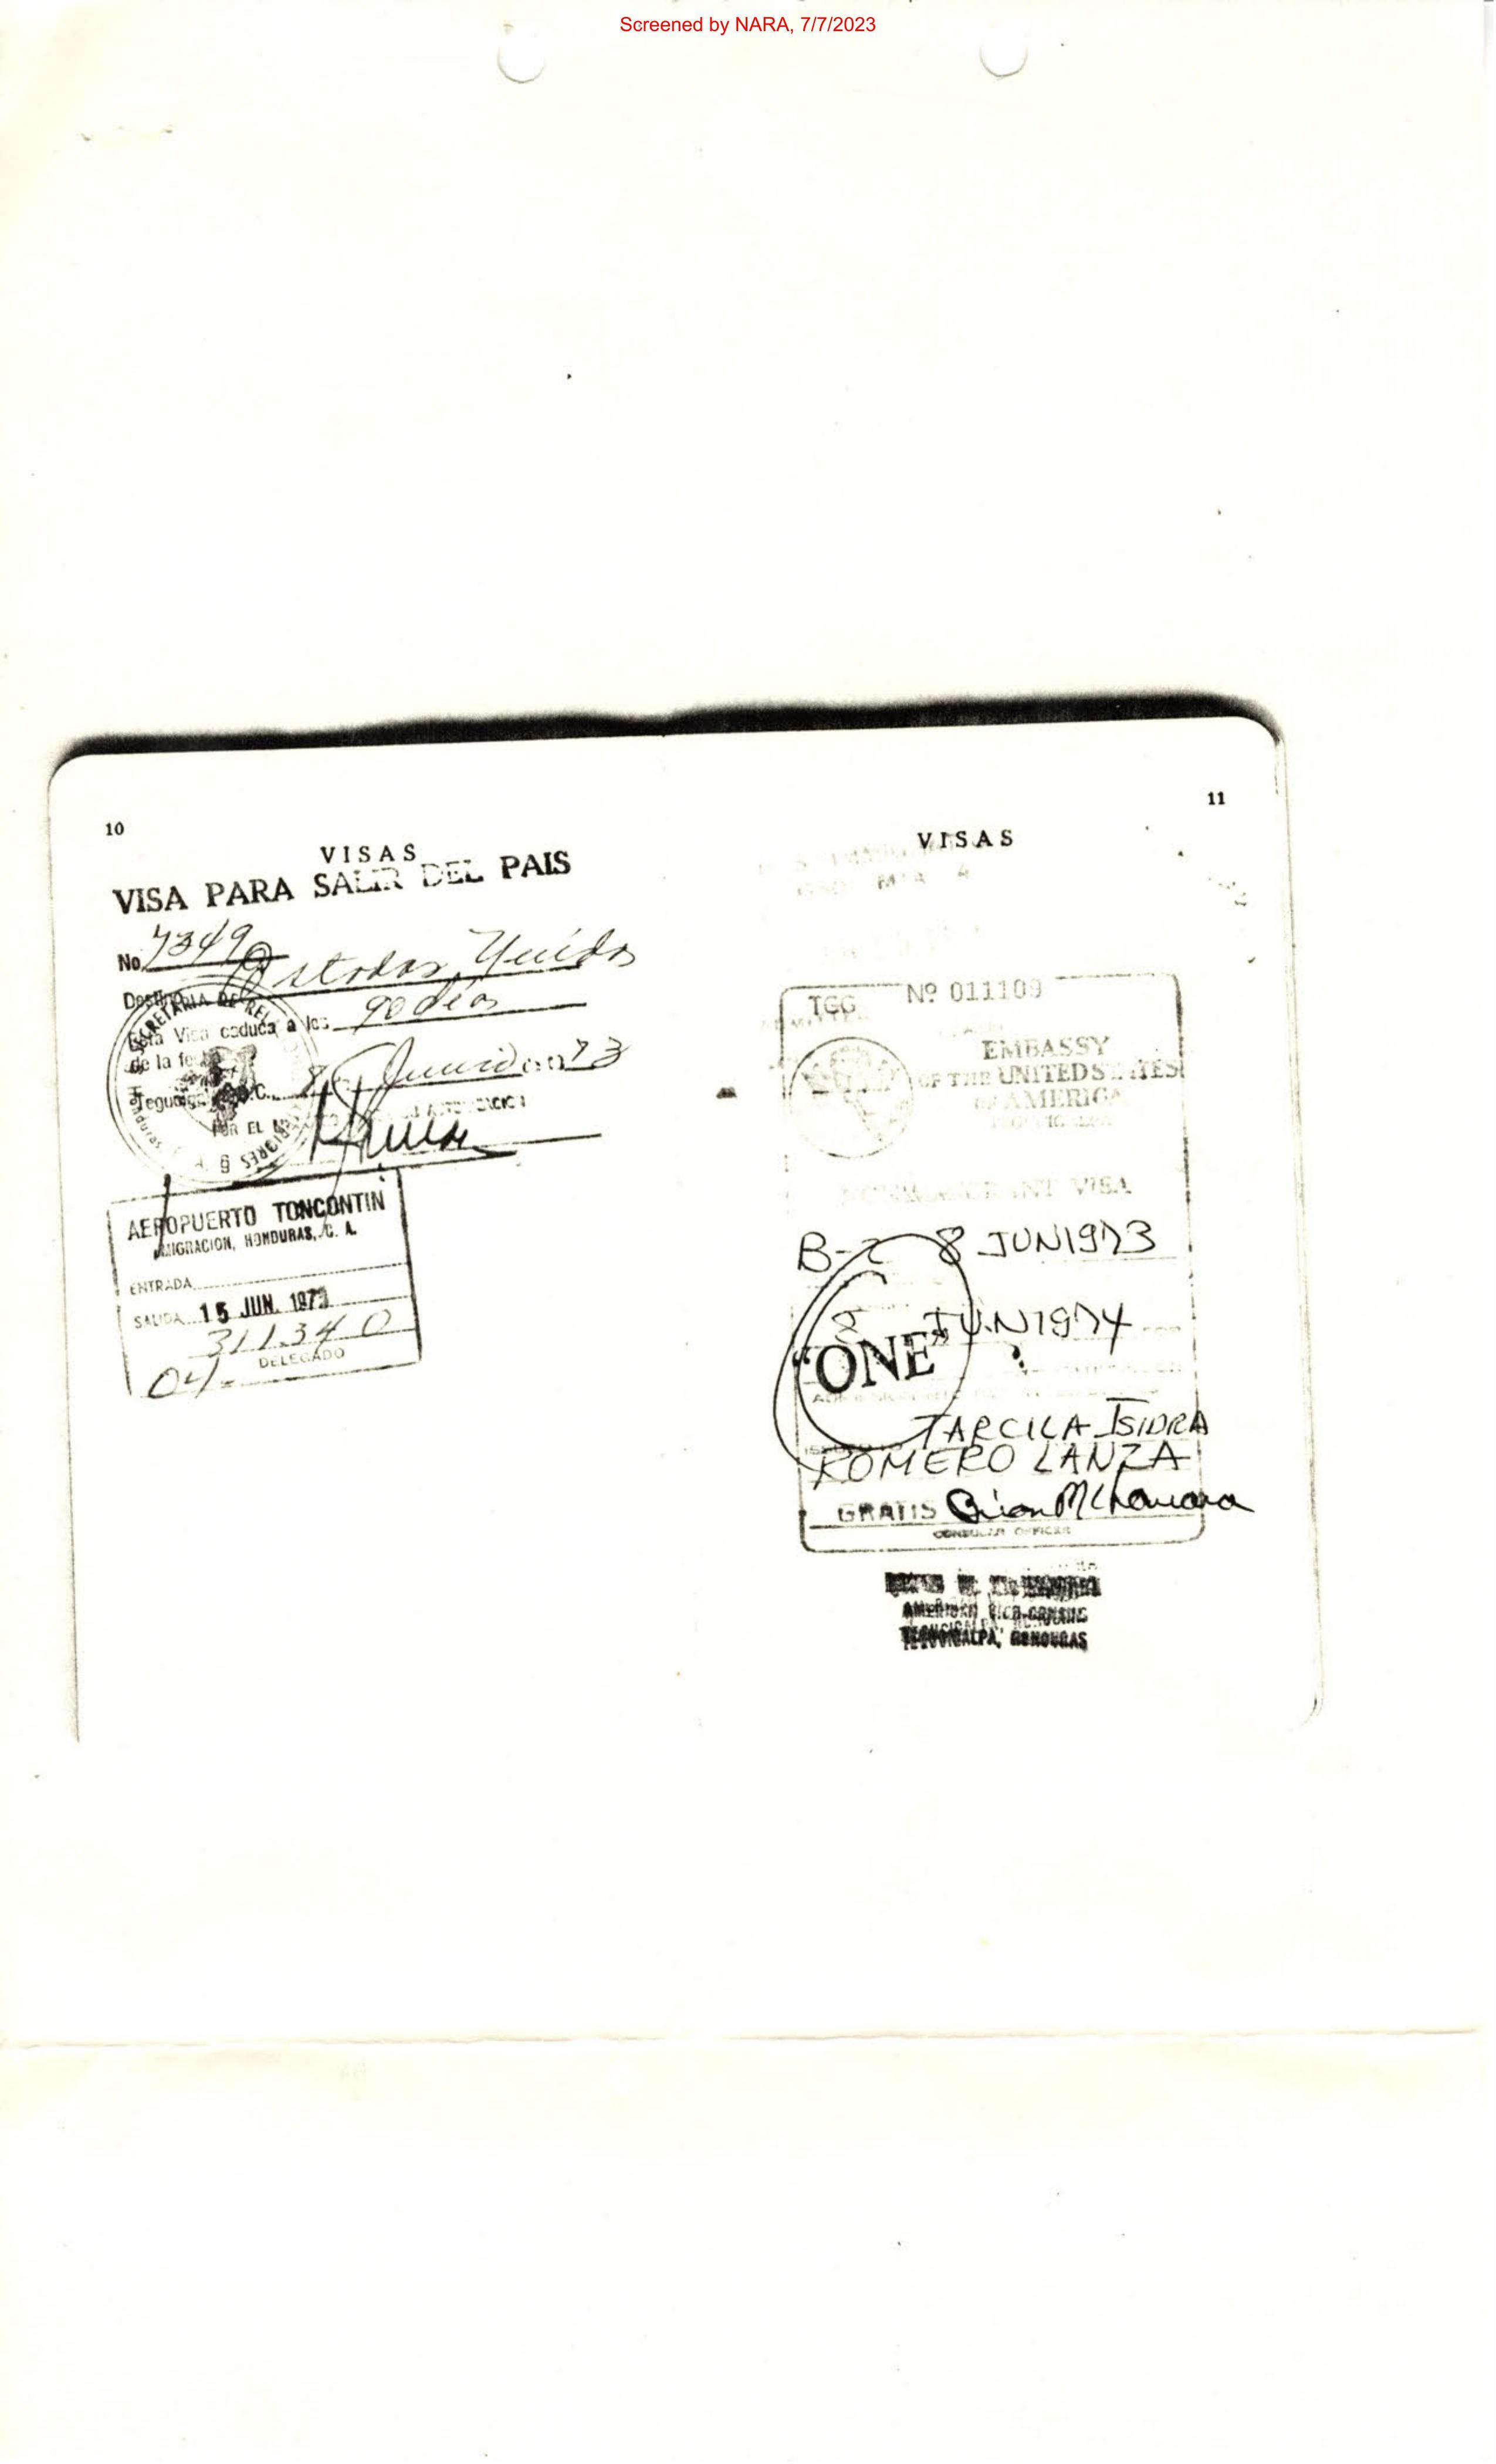 Screened by NARA, 7/7/2023
10
VISAS
VISA PARA SALIR DEL PAIS
No. 7349
Destino Estados Unidos
Esta Visa caduca a los 90 días
de la
Tegucigalpa, D.C. 8 Junio 73
POR EL
AEROPUERTO TONCONTIN
MIGRACION, HONDURAS, C. A.
ENTRADA
SALIDA 15 JUN. 1973
311340
04
DELEGADO
11
VISAS
TGG Nº 011109
EMBASSY
OF THE UNITED STATES
OF AMERICA
NONIMMIGRANT VISA
B-2 8 JUN 1973
8 JUN 1974
"ONE"
TARCILA ISIDRA
ROMERO LANZA
GRATIS
CONSULAR OFFICER
AMERICAN VICE-CONSUL
TEGUCIGALPA, HONDURAS